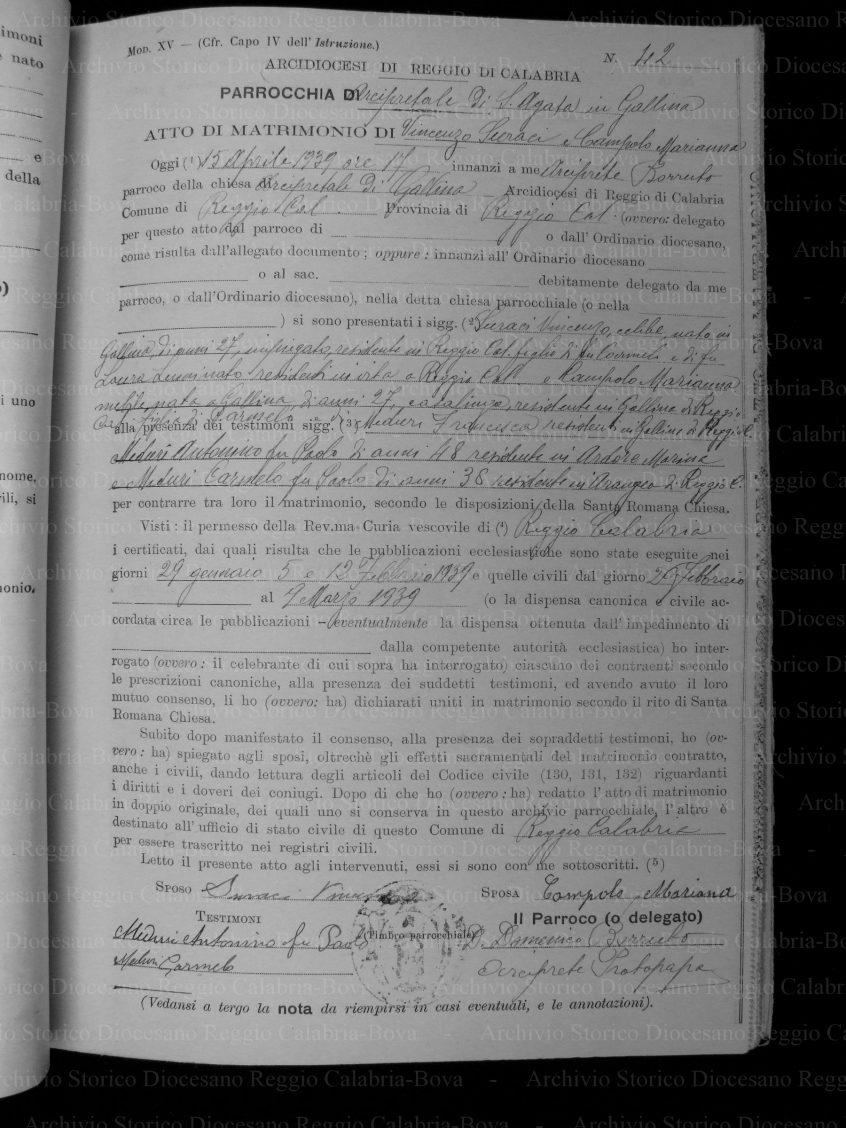 Mod. XV — (Cfr. Capo IV dell' Istruzione.)
N. 42
ARCIDIOCESI DI REGGIO DI CALABRIA
PARROCCHIA DI Arcipretale di S. Agata in Gallina
ATTO DI MATRIMONIO DI Vincenzo Suraci e Campolo Marianna
Oggi (¹) 15 Aprile 1939 ore 17 innanzi a me Arciprete Borruto
parroco della chiesa di Arcipretale di Gallina Arcidiocesi di Reggio di Calabria
Comune di Reggio Cal. Provincia di Reggio Cal. (ovvero: delegato
per questo atto dal parroco di o dall' Ordinario diocesano,
come risulta dall'allegato documento; oppure: innanzi all' Ordinario diocesano
o al sac. debitamente delegato da me
parroco, o dall'Ordinario diocesano), nella detta chiesa parrocchiale (o nella
) si sono presentati i sigg. (² Suraci Vincenzo, celibe nato in
Gallina, di anni 27, impiegato, residente in Reggio Cal. figlio di fu Carmelo e di fu
Laura residenti in vita a Reggio Cal. e Campolo Marianna
nubile, nata a Gallina, di anni 27, casalinga, residente in Gallina di Reggio
Cal. figlia di Carmelo Meduri Francesca residenti in Gallina di Reggio C.
alla presenza dei testimoni sigg. (³)
Meduri Antonino fu Paolo di anni 48 residente in Ardore Marina
e Meduri Carmelo fu Paolo di anni 36 residente in Arangea di Reggio C.
per contrarre tra loro il matrimonio, secondo le disposizioni della Santa Romana Chiesa.
Visti: il permesso della Rev.ma Curia vescovile di (⁴) Reggio Calabria
i certificati, dai quali risulta che le pubblicazioni ecclesiastiche sono state eseguite nei
giorni 29 gennaio 5 e 12 Febbraio 1939 e quelle civili dal giorno Febbraio
al Marzo 1939 (o la dispensa canonica e civile ac-
cordata circa le pubblicazioni - eventualmente la dispensa ottenuta dall' impedimento di
dalla competente autorità ecclesiastica) ho inter-
rogato (ovvero: il celebrante di cui sopra ha interrogato) ciascuno dei contraenti secondo
le prescrizioni canoniche, alla presenza dei suddetti testimoni, ed avendo avuto il loro
mutuo consenso, li ho (ovvero: ha) dichiarati uniti in matrimonio secondo il rito di Santa
Romana Chiesa.
Subito dopo manifestato il consenso, alla presenza dei sopraddetti testimoni, ho (ov-
vero: ha) spiegato agli sposi, oltrechè gli effetti sacramentali del matrimonio contratto,
anche i civili, dando lettura degli articoli del Codice civile (130, 131, 132) riguardanti
i diritti e i doveri dei coniugi. Dopo di che ho (ovvero: ha) redatto l'atto di matrimonio
in doppio originale, dei quali uno si conserva in questo archivio parrocchiale, l'altro è
destinato all' ufficio di stato civile di questo Comune di Reggio Calabria
per essere trascritto nei registri civili.
Letto il presente atto agli intervenuti, essi si sono con me sottoscritti. (⁵)
SPOSO Suraci Vincenzo SPOSA Campolo Mariana
TESTIMONI Il Parroco (o delegato)
Meduri Antonino fu Paolo (Timbro parrocchiale) D. Domenico Borruto
Meduri Carmelo Arciprete Protopapa
(Vedansi a tergo la nota da riempirsi in casi eventuali, e le annotazioni).
Archivio Storico Diocesano Reggio Calabria-Bova